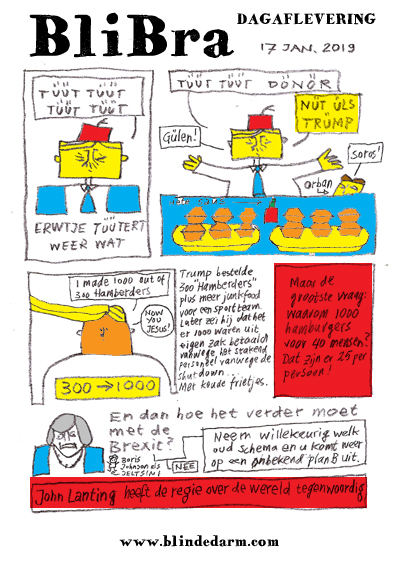 BliBra
DAGAFLEVERING
17 JAN. 2019
TÜÜT TÜÜT
TÜÜT TÜÜT
ERWTJE TÜÜTERT
WEER WAT
TÜÜT TÜÜT DÖNÖR
NÜT ÜLS
TRÜMP
Gülen!
Soros!
Orban
I made 1000 out of
300 Hamberders
NOW
YOU
JESUS!
300 → 1000
Trump bestelde
"300 Hamberders"
plus meer junkfood
voor een sportteam.
Later zei hij dat het
er 1000 waren uit
eigen zak betaald
vanwege het stakend
personeel vanwege de
shutdown...
Met koude frietjes.
Maar de
grootste vraag:
waarom 1000
hamburgers
voor 40 mensen?
Dat zijn er 25 per
persoon!
En dan hoe het verder moet
met de
Brexit?
Boris
Johnson als
JELTSIN!
NEE
Neem willekeurig welk
oud schema en u komt weer
op een onbekend plan B uit.
John Lanting heeft de regie over de wereld tegenwoordig
www.blindedarm.com